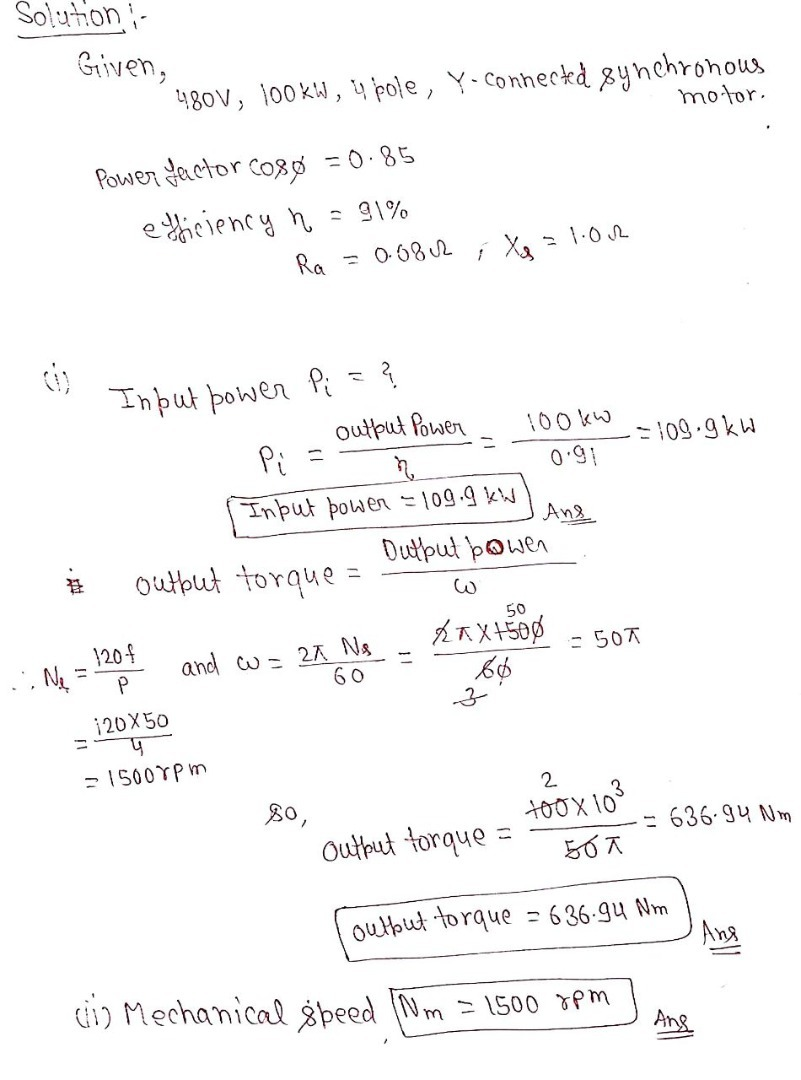 Solution :-
Given,
480V, 100KW, 4 pole, Y-connected synchronous
motor.
Power factor cosϕ = 0.85
efficiency η = 91%
Ra = 0.08Ω , Xs = 1.0Ω
(i) Input power Pi = ?
Pi = output Power / η = 100 kw / 0.91 = 109.9 kW
Input power = 109.9 kW Ans
output torque = Output power / ω
∴ Ns = 120f / P and ω = 2π Ns / 60 = 2π×1500 / 60 = 50π
50
3
= 120×50 / 4
= 1500rpm
so,
2
Output torque = 100×10³ / 50π = 636.94 Nm
output torque = 636.94 Nm Ans
(ii) Mechanical speed Nm = 1500 rpm Ans